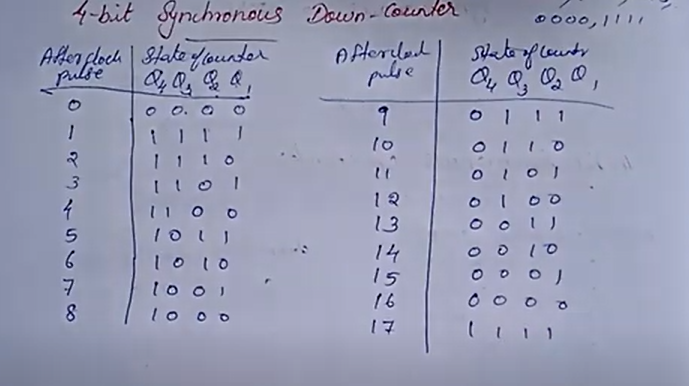 4-bit Synchronous Down-Counter
0000, 1111
After clock pulse State of counter
Q4 Q3 Q2 Q1
0 0 0 0 0
1 1 1 1 1
2 1 1 1 0
3 1 1 0 1
4 1 1 0 0
5 1 0 1 1
6 1 0 1 0
7 1 0 0 1
8 1 0 0 0
After clock pulse State of counter
Q4 Q3 Q2 Q1
9 0 1 1 1
10 0 1 1 0
11 0 1 0 1
12 0 1 0 0
13 0 0 1 1
14 0 0 1 0
15 0 0 0 1
16 0 0 0 0
17 1 1 1 1